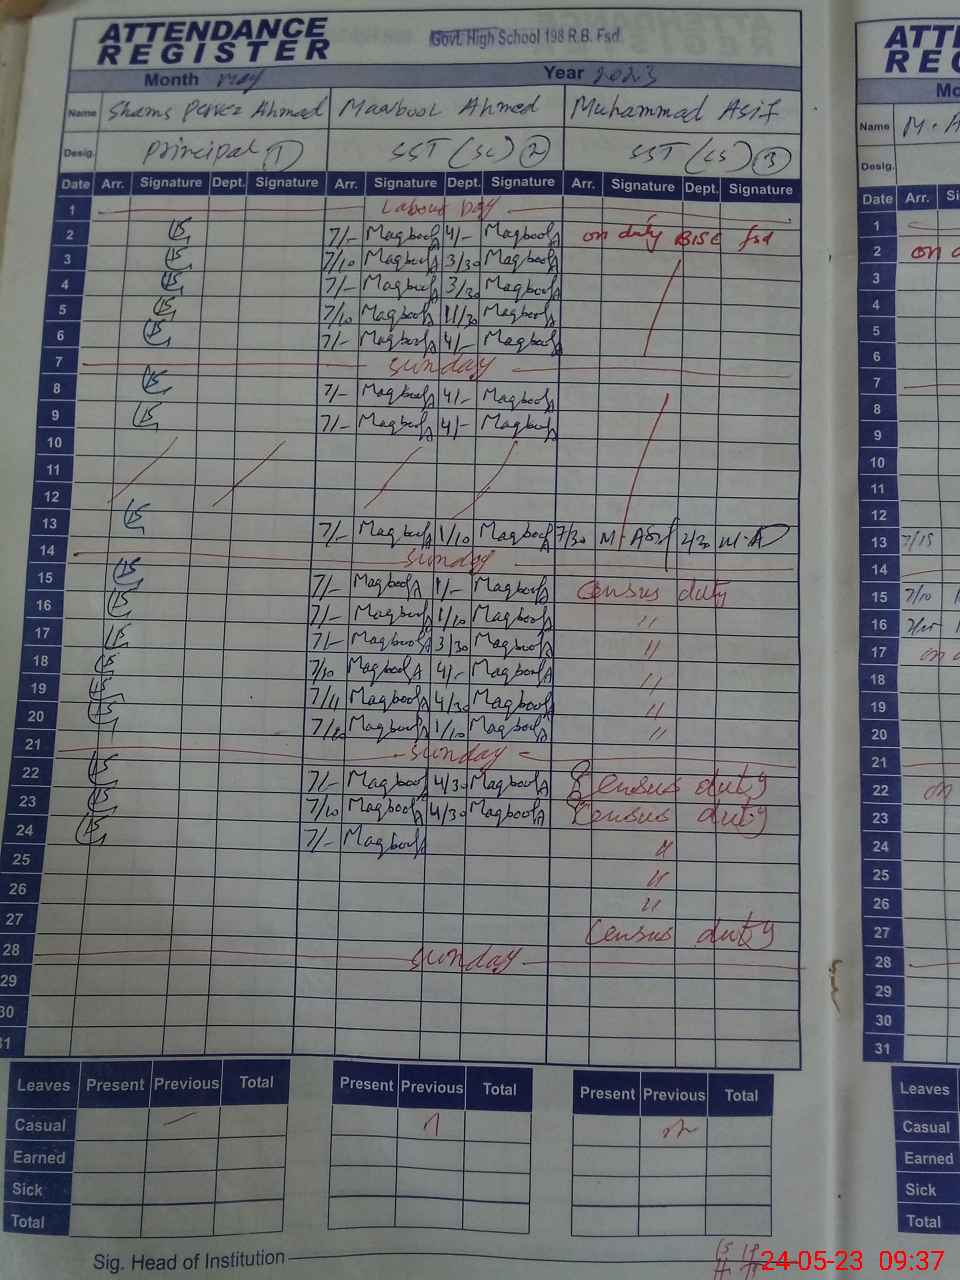 ATTENDANCE
REGISTER
Govt. High School 198 R.B. Fsd.
Month May Year 2023
Name Shams Pervez Ahmad Maqbool Ahmed Muhammad Asif
Desig. Principal (1) SST (Sc) (2) SST (CS) (3)
Date Arr. Signature Dept. Signature Arr. Signature Dept. Signature Arr. Signature Dept. Signature
1 Labour Day
2 7/- MaqboolA 4/- MaqboolA on duty BISE fsd
3 7/10 MaqboolA 3/30 MaqboolA
4 7/- MaqboolA 3/30 MaqboolA
5 7/10 MaqboolA 11/30 MaqboolA
6 7/- MaqboolA 4/- MaqboolA
7 Sunday
8 7/- MaqboolA 4/- MaqboolA
9 7/- MaqboolA 4/- MaqboolA
10
11
12
13 7/- MaqboolA 1/10 MaqboolA 7/30 M. Asif 2/30
14 Sunday
15 7/- MaqboolA 1/- MaqboolA Census duty
16 7/- MaqboolA 1/10 MaqboolA "
17 7/- MaqboolA 3/30 MaqboolA "
18 7/10 MaqboolA 4/- MaqboolA "
19 MaqboolA 4/30 MaqboolA "
20 MaqboolA 1/10 MaqboolA "
21 Sunday
22 7/- MaqboolA 4/30 MaqboolA Census duty
23 7/10 MaqboolA 4/30 MaqboolA Census duty
24 7/- MaqboolA "
25 "
26 "
27 Census duty
28 Sunday
29
30
31
Leaves Present Previous Total Present Previous Total Present Previous Total
Casual
Earned
Sick
Total
Sig. Head of Institution
ATTE
REG
Mo
Name M. A
Desig.
Date Arr. Si
1
2 on d
3
4
5
6
7
8
9
10
11
12
13 7/15
14
15 7/10
16
17 on d
18
19
20
21
22 on
23
24
25
26
27
28
29
30
31
Leaves
Casual
Earned
Sick
Total
24-05-23 09:37